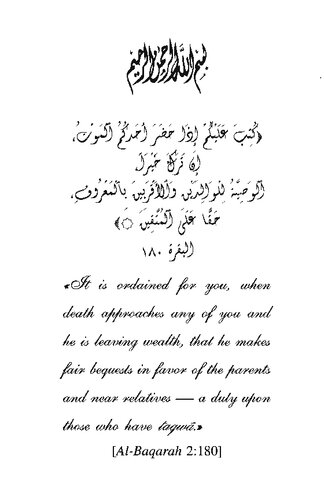 بسم الله الرحمن الرحيم
﴿كُتِبَ عَلَيْكُمْ إِذَا حَضَرَ أَحَدَكُمُ ٱلْمَوْتُ،
إِن تَرَكَ خَيْرًا
ٱلْوَصِيَّةُ لِلْوَالِدَيْنِ وَٱلْأَقْرَبِينَ بِٱلْمَعْرُوفِ،
حَقًّا عَلَى ٱلْمُتَّقِينَ ۝﴾
البقرة ١٨٠
«It is ordained for you, when
death approaches any of you and
he is leaving wealth, that he makes
fair bequests in favor of the parents
and near relatives — a duly upon
those who have taqwā.»
[Al-Baqarah 2:180]